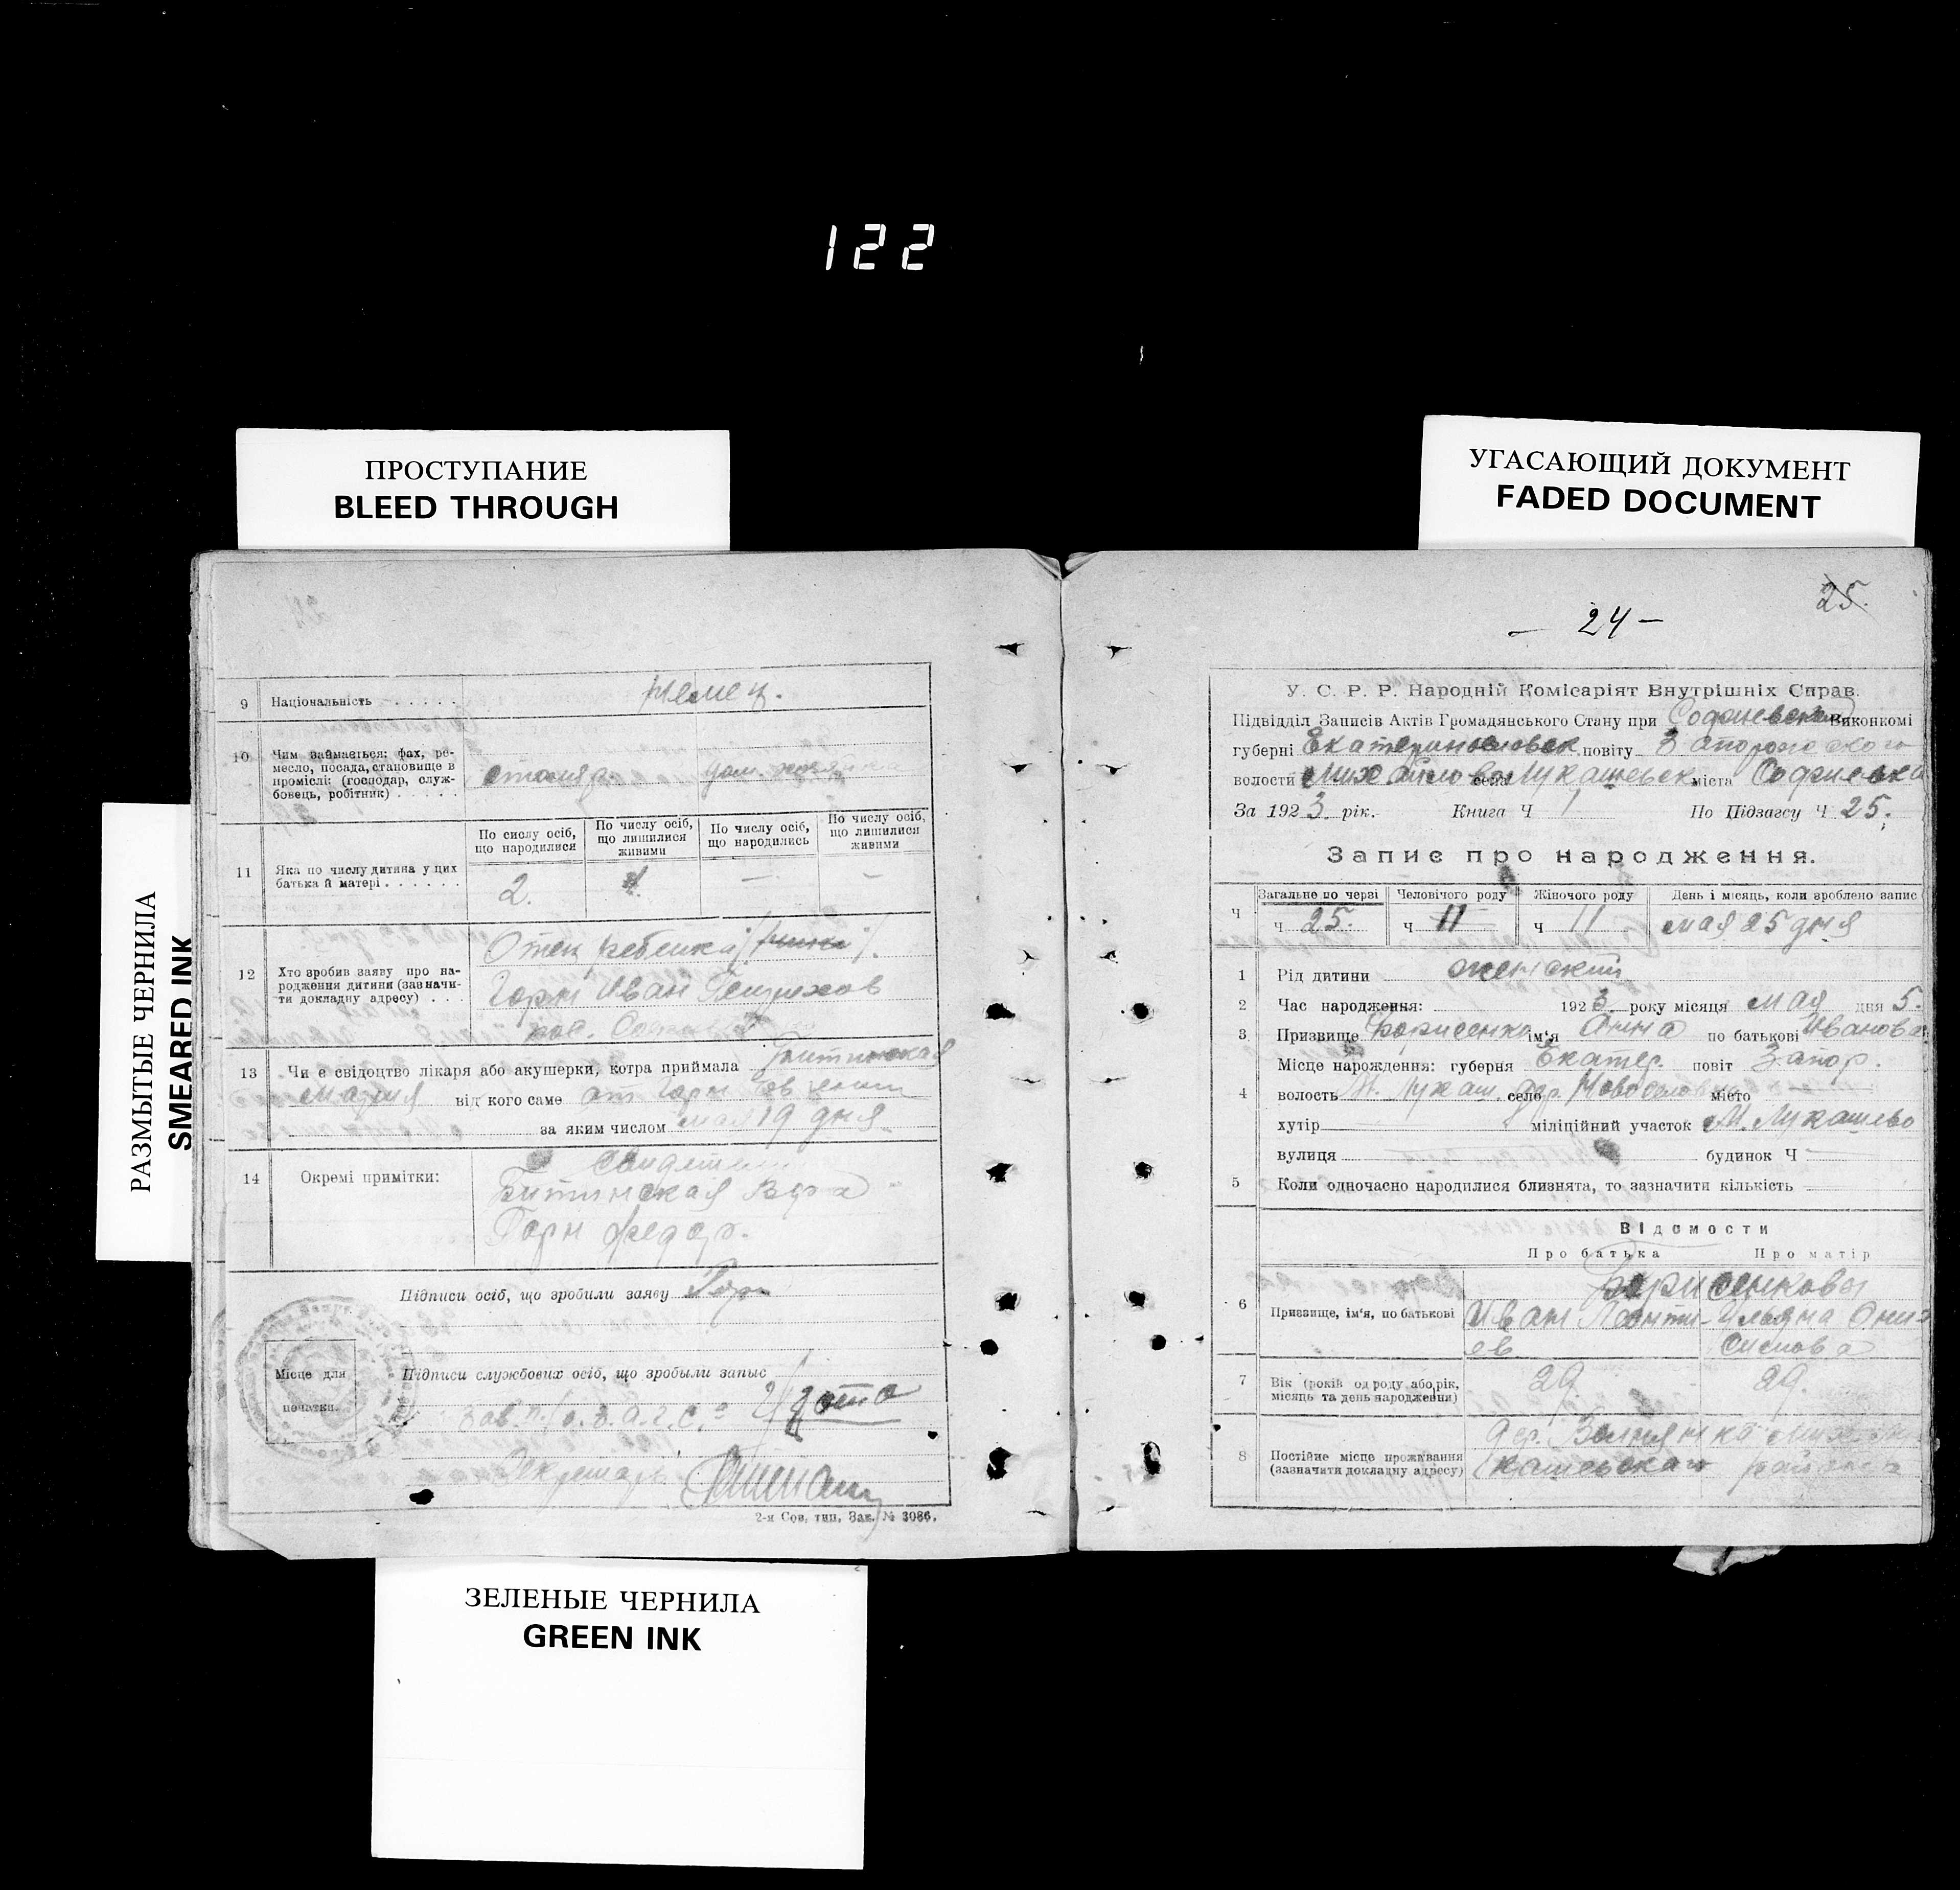 122
ПРОСТУПАНИЕ
BLEED THROUGH
УГАСАЮЩИЙ ДОКУМЕНТ
FADED DOCUMENT
РАЗМЫТЫЕ ЧЕРНИЛА
SMEARED INK
9 Національність . . . . . немец.
10 Чим займається: фах, ре-
месло, посада, становище в
проміслі: (господар, служ-
бовець, робітник) . . . . .
столяр дом. хозяйка
По сислу осіб, що народилися
По числу осіб, що лишилися живими
По числу осіб, що народились
По числу осіб, що лишилися живими
11 Яка по числу дитина у цих
батька й матері . . . . . .
2. — —
12 Хто зробив заяву про на-
родження дитини (зазначи-
ти докладну адресу) . . .
Отец ребенка
Горн Иван
13 Чи є свідоцтво лікаря або акушерки, котра приймала
Мария від кого саме от Горн
за яким числом мая 19 дня
14 Окремі примітки:
Битинская Вера
Горн Федор.
Підписи осіб, що зробили заяву Горн
Місце для
печатки.
Підписи службових осіб, що зробыли запыс
зав. п/о. З.А.Г.С.а
Секретарь
2-я Сов. тип. Зак. № 3086.
25.
— 24 —
У. С. Р. Р. Народній Комісаріят Внутрішніх Справ.
Підвідділ Записів Актів Громадянського Стану при Софиевском Виконкомі
губерні Екатеринославск повіту Запорожского
волости Михайлово села Лукашевск міста Софиевка
За 1923 рік. Книга Ч 1 По Підзагсу Ч 25.
Запис про народження.
Загальне по черзі Человічого роду Жіночого роду День і місяць, коли зроблено запис
Ч Ч 25. Ч 11 Ч 11 мая 25 дня
1 Рід дитини женский
2 Час народження: 1923 року місяця мая дня 5.
3 Призвище Борисенко ім'я Анна по батькові Иванова
Місце народження: губерня Екатер. повіт Запор.
4 волость М. Лукаш. село місто
хутір міліційний участок М. Лукашево
вулиця будинок Ч —
5 Коли одночасно народилися близнята, то зазначити кількість
Відомости
Про батька Про матір
Борисенковы
6 Призвище, ім'я, по батькові
Иван Леонти- Ульяна Они-
ев симова
7 Вік (рокій од роду або рік,
місяць та день народження)
29. 29.
8 Постійне місце проживання
(зазначити докладну адресу)
дер. Волнянка Мих. Лу
кашевского района
ЗЕЛЕНЫЕ ЧЕРНИЛА
GREEN INK